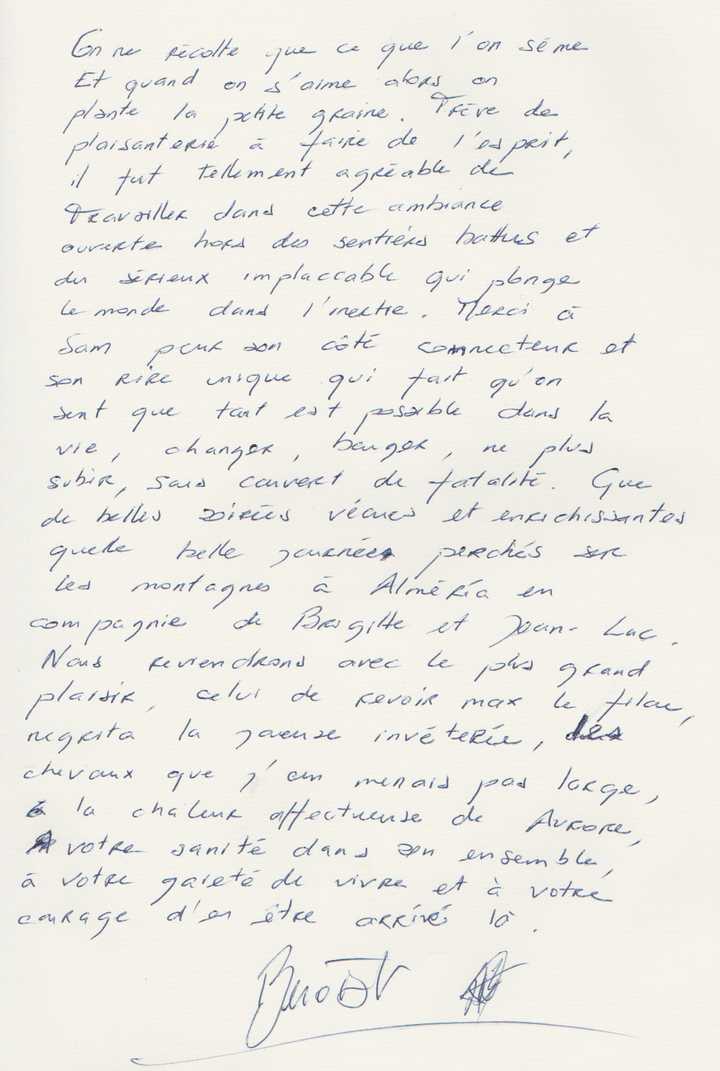 On ne récolte que ce que l'on sème
Et quand on s'aime alors on
plante la petite graine. Trève de
plaisanterie à faire de l'esprit,
il fut tellement agréable de
Travailler dans cette ambiance
ouverte hors des sentiers battus et
du sérieux implaccable qui plonge
le monde dans l'inertie. Merci à
Sam pour son côté connecteur et
son rire unique qui fait qu'on
sent que tout est possible dans la
vie, changer, bouger, ne plus
subir, sans couvert de fatalité. Que
de belles soirées vécues et enrichissantes
quelle belle journées perchés sur
les montagnes à Alméría en
compagnie de Brigitte et Jean-Luc.
Nous reviendrons avec le plus grand
plaisir, celui de revoir max le filou,
negrita la joueuse invéterée, les
chevaux que j'en menais pas large,
à la chaleur affectueuse de Aurore,
votre sanité dans son ensemble,
à votre gaieté de vivre et à votre
courage d'en être arrivés là.
Benoît